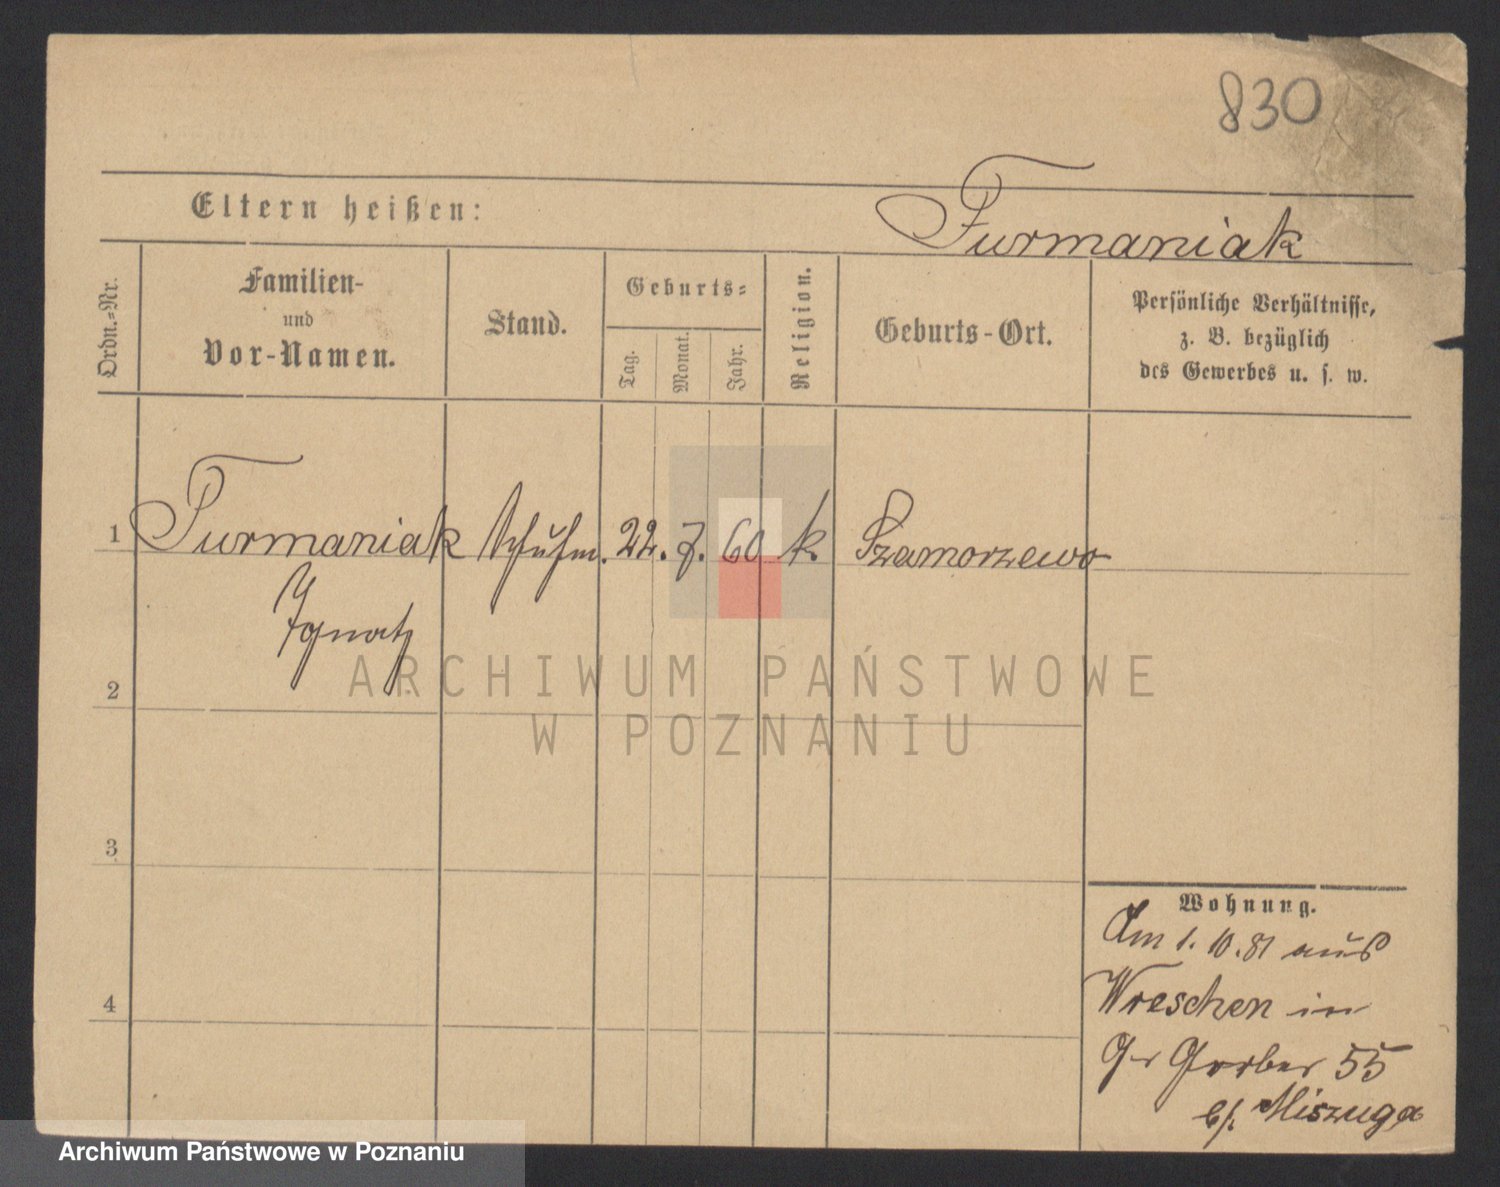 830
Eltern heißen:
Furmaniak
Ordn.-Nr.
Familien-
und
Vor-Namen.
Stand.
Geburts-
Tag.
Monat.
Jahr.
Religion.
Geburts-Ort.
Persönliche Verhältnisse,
z. B. bezüglich
des Gewerbes u. s. w.
1 Furmaniak Schuhm. 22. 7. 60 k. Szamorzewo
Ignatz
2
3
4
Wohnung.
Am 1. 10. 81 aus
Wreschen in
Gr Gerber 55
b/. Miszuga
ARCHIWUM PAŃSTWOWE
W POZNANIU
Archiwum Państwowe w Poznaniu